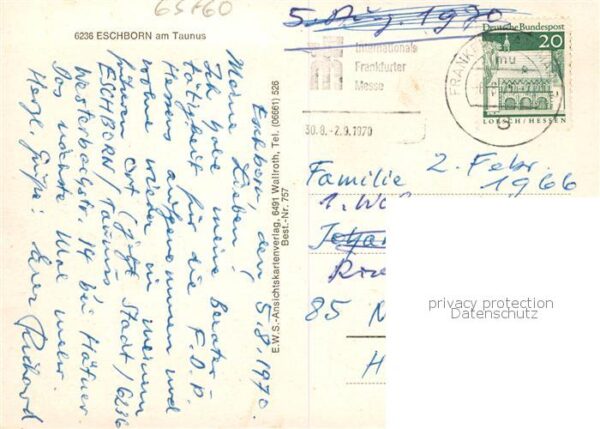 65760
6236 ESCHBORN am Taunus
Eschborn, den 5.8.1970.
Meine Lieben!
Ich habe meine Berater-
tätigkeit für die F.D.P.
Hessens aufgenommen und
wohne wieder in meinem
früheren Ort (jetzt Stadt) 6236
ESCHBORN/Taunus
Westerbachstr. 14 bei Häfner
Das nächste Mal mehr.
Herzl. Grüße! Euer Richard
E.W.S.-Ansichtskartenverlag, 6491 Wallroth, Tel. (06661) 526
Best.-Nr. 757
5. Aug. 1970
Internationale
Frankfurter
Messe
30.8.-2.9.1970
FRANKF
Deutsche Bundespost
20
LORSCH/HESSEN
2. Febr.
1966
Familie
1.
85 N
H
privacy protection
Datenschutz